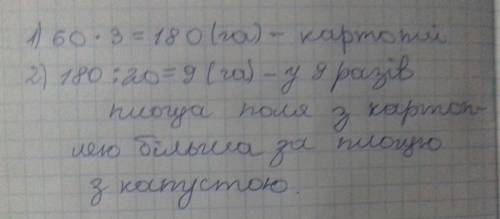 1) 60 · 3 = 180 (га) - картоплі
2) 180 : 20 = 9 (га) - у 9 разів
площа поля з картоп-
лею більша за площу
з капустою.